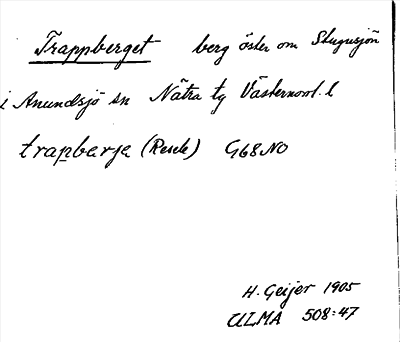 Trappberget berg öster om Stugusjön
i Anundsjö sn Nätra tg Västernorrl. l
trapbarja (Resele) G68NO
H. Geijer 1905
ULMA 508:47